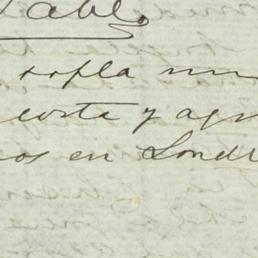 Pablo
sopla un
costa y agr
os en Londr